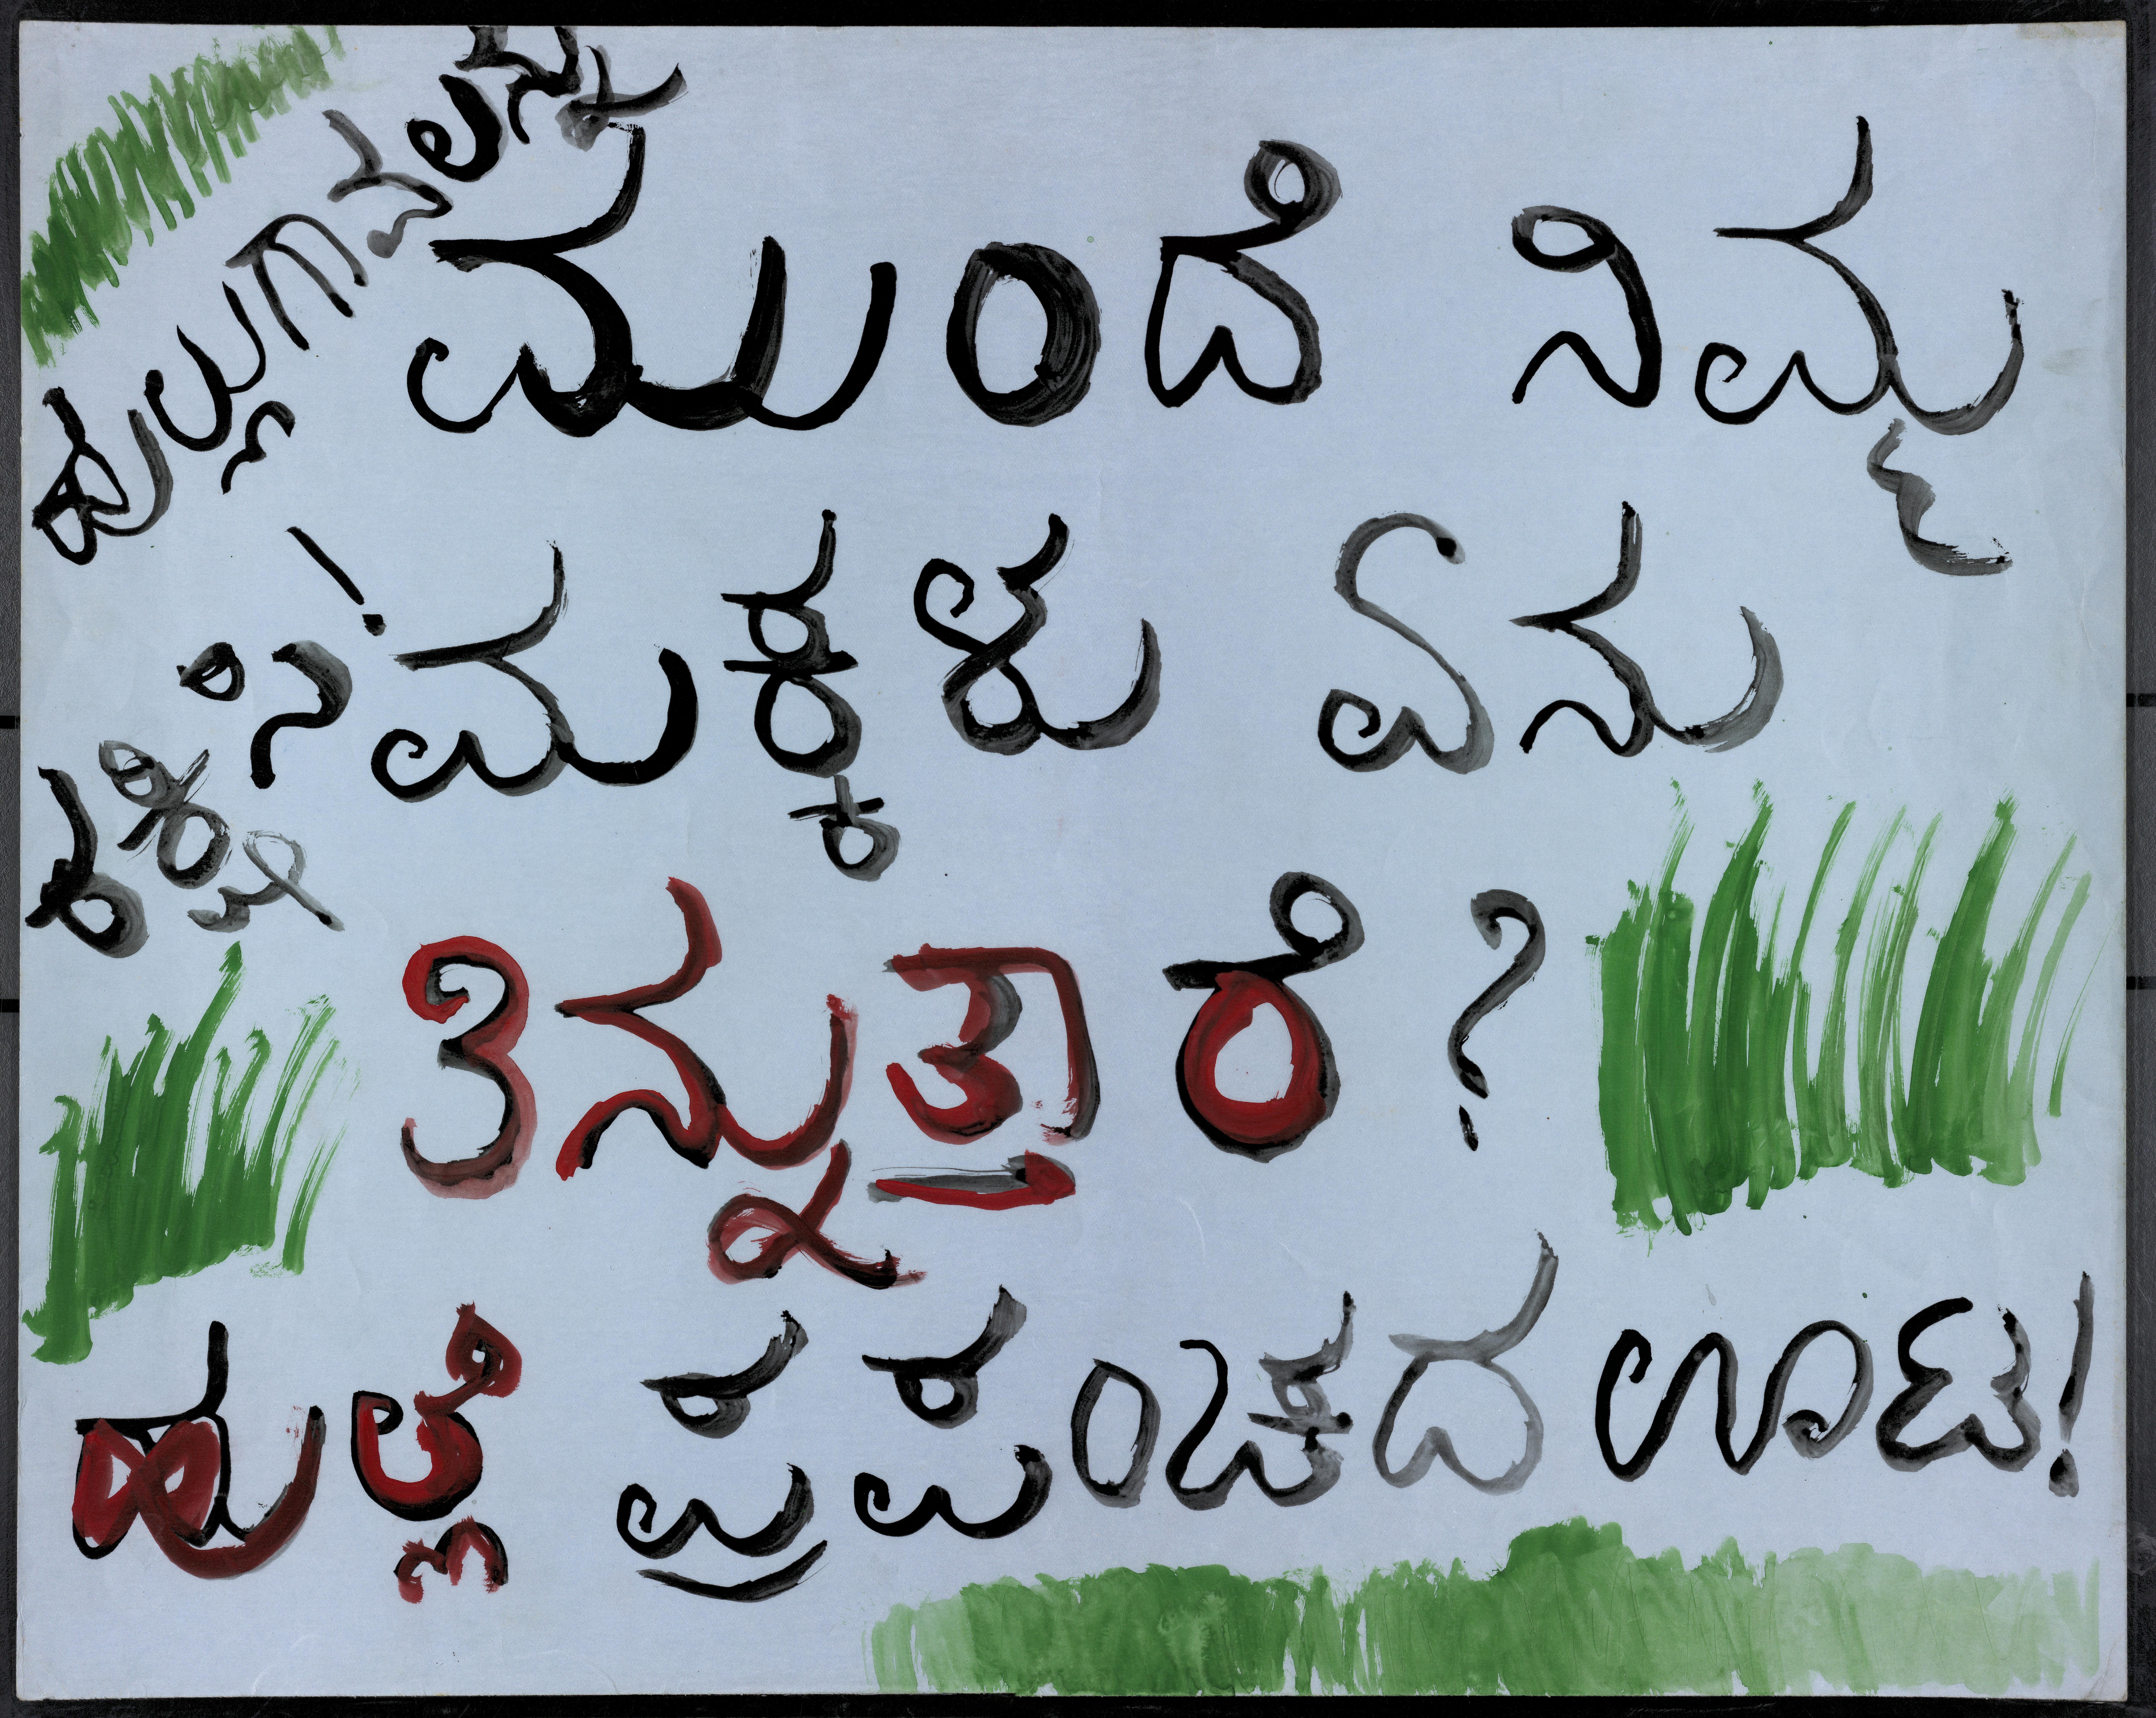 ಹುಲ್ಲುಗಾವಲನ್ನು
ರಕ್ಷಿಸಿ!
ಮುಂದೆ ನಿಮ್ಮ
ಮಕ್ಕಳು ಏನು
ತಿನ್ನುತ್ತಾರೆ ?
ಹುಲ್ಲೆ ಪ್ರಪಂಚದ ಊಟ!